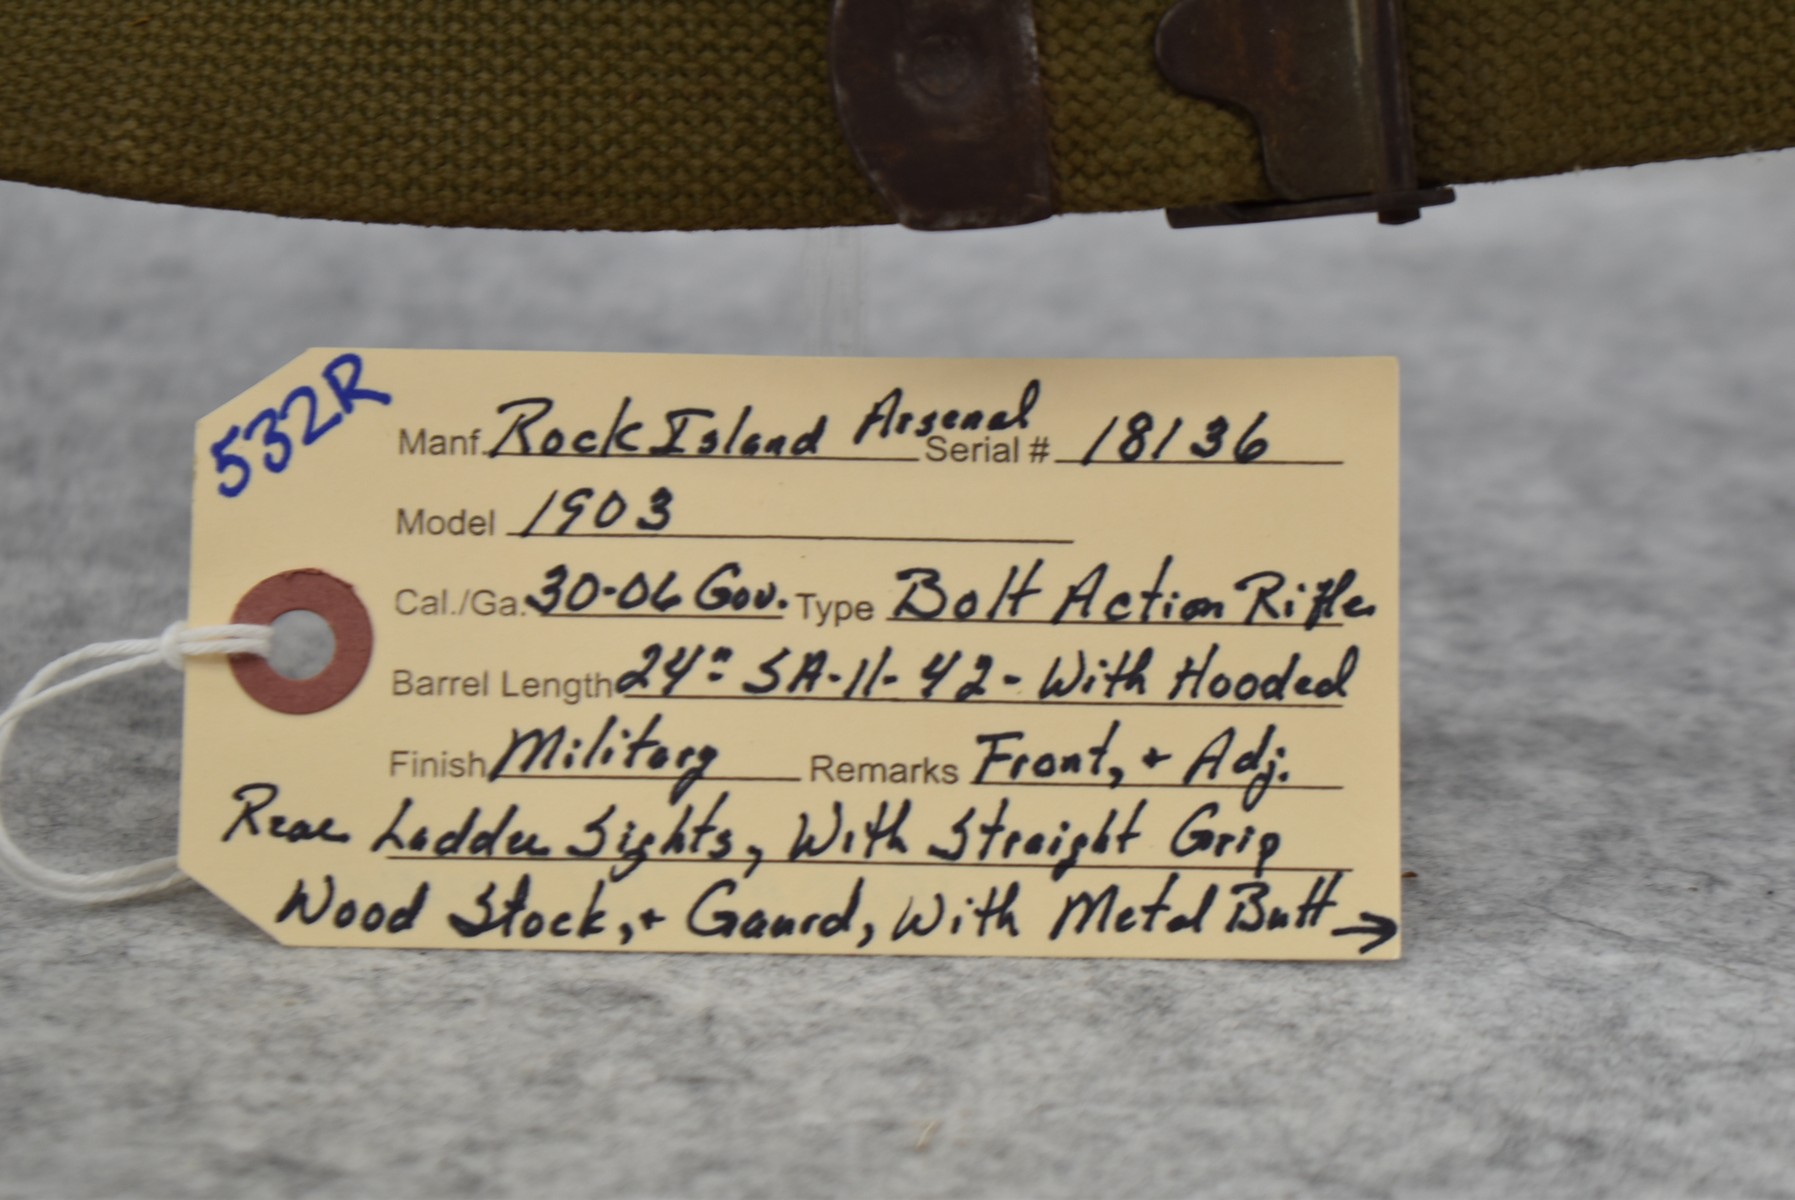 532R
Manf. Rock Island Arsenal Serial # 18136
Model 1903
Cal./Ga. 30-06 Gov. Type Bolt Action Rifle
Barrel Length 24" SA-11-42-With Hooded
Finish Military Remarks Front, + Adj.
Rear Ladder Sights, With Straight Grip
Wood Stock, + Gaurd, With Metal Butt →